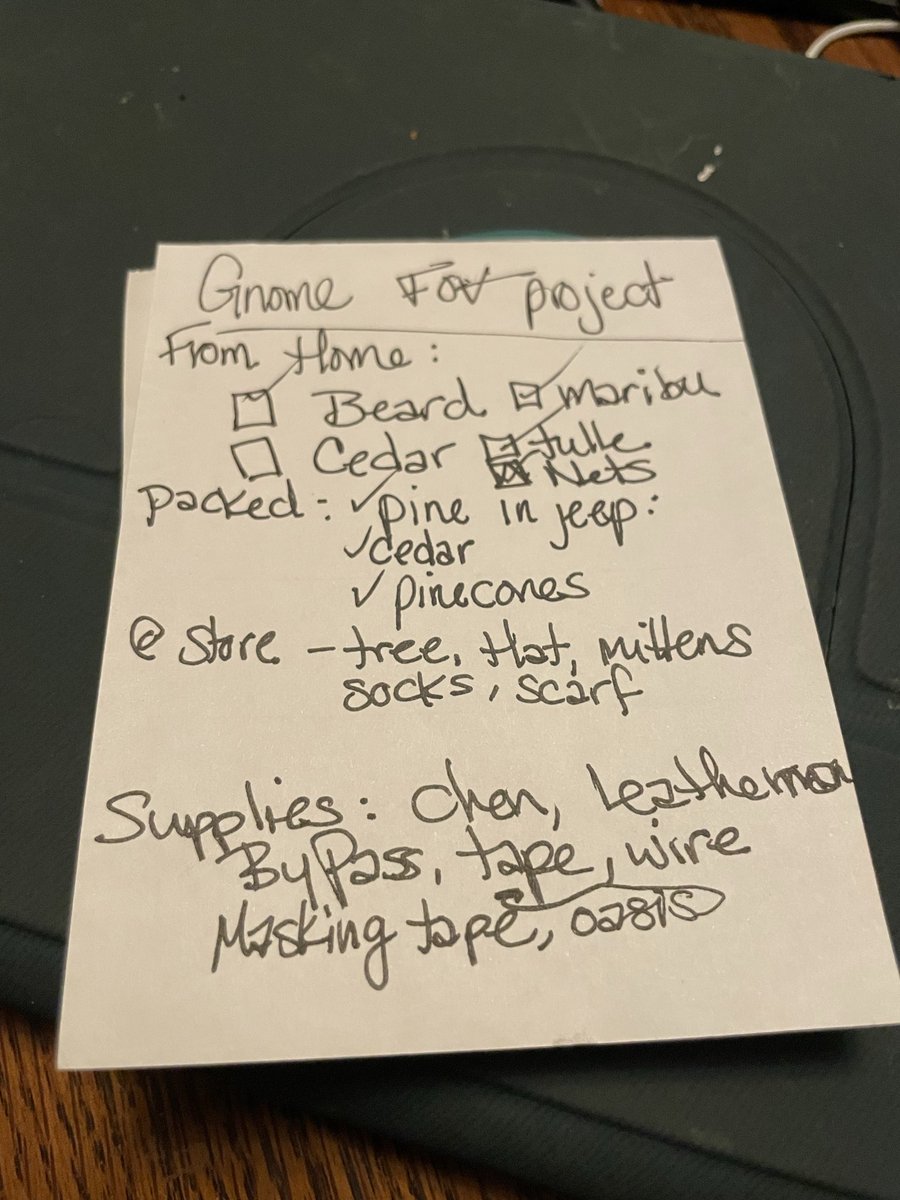 Gnome FOV project
From Home:
☑ Beard ☑ maribu
☐ Cedar ☑ tulle
☒ Nets
Packed: ✓pine in jeep:
✓cedar
✓pinecones
@ Store - tree, Hat, mittens
socks, scarf
Supplies: Chen, Leatherman
ByPass, tape, wire
Masking tape, oasis